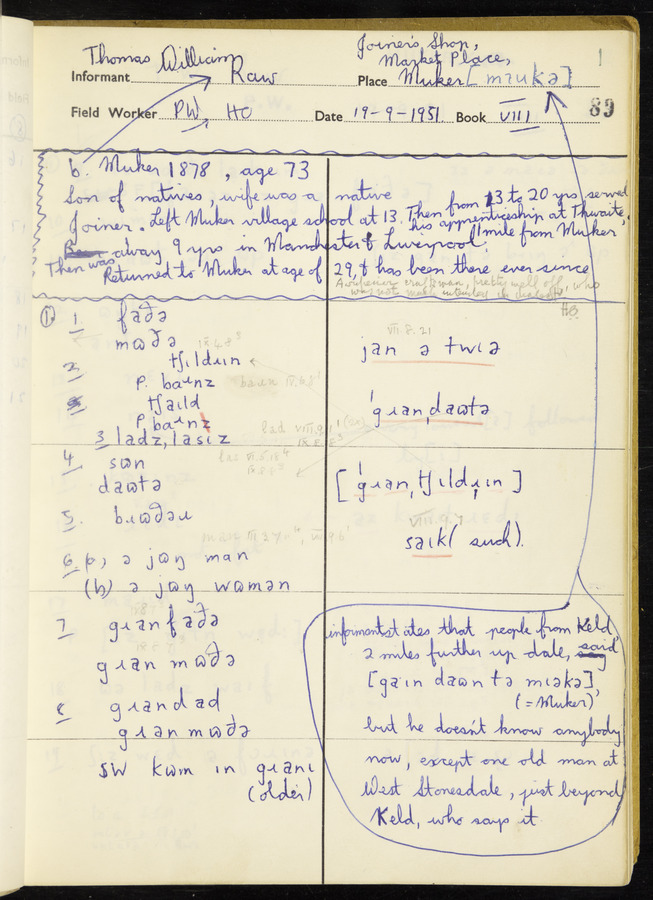 Thomas William Raw
Informant
Joiner's Shop,
Market Place,
Place Muker [mɪuka]
1
Field Worker PW, HO Date 19-9-1951 Book VIII 89
b. Muker 1878, age 73
Son of natives, wife was a native
Joiner. Left Muker village school at 13. Then from 13 to 20 yrs served
his apprenticeship at Thwaite, 1 mile from Muker
Then was away 9 yrs in Manchester & Liverpool.
Returned to Muker at age of 29, & has been there ever since
A superior craftsman, pretty well off, who
was not
HO
① 1 faðə
mʊðə
2 tʃɪldɹɪn
p. baɪnz
tʃaɪld
p. baɪnz
3 ladz, lasɪz
4 sʊn
daʊtə
5. bɹʊðəɹ
6 p, ə jʊŋ man
(b) ə jʊŋ wʊmən
7 gɹanfaðə
gɹan mʊðə
8 gɹandad
gɹan mʊðə
SW kʊm in gɹanɪ
(older)
VII.8.21
jan ə twɪə
ˈgɹanˌdaʊtə
[ˈgɹanˌtʃɪldɹɪn]
VIII.9.7
saɪk (such).
informant states that people from Keld,
2 miles further up dale, said
[gaˑɪn daʊn tə mɪəkə],
(= Muker)
but he doesn't know anybody
now, except one old man at
West Stonesdale, just beyond
Keld, who says it